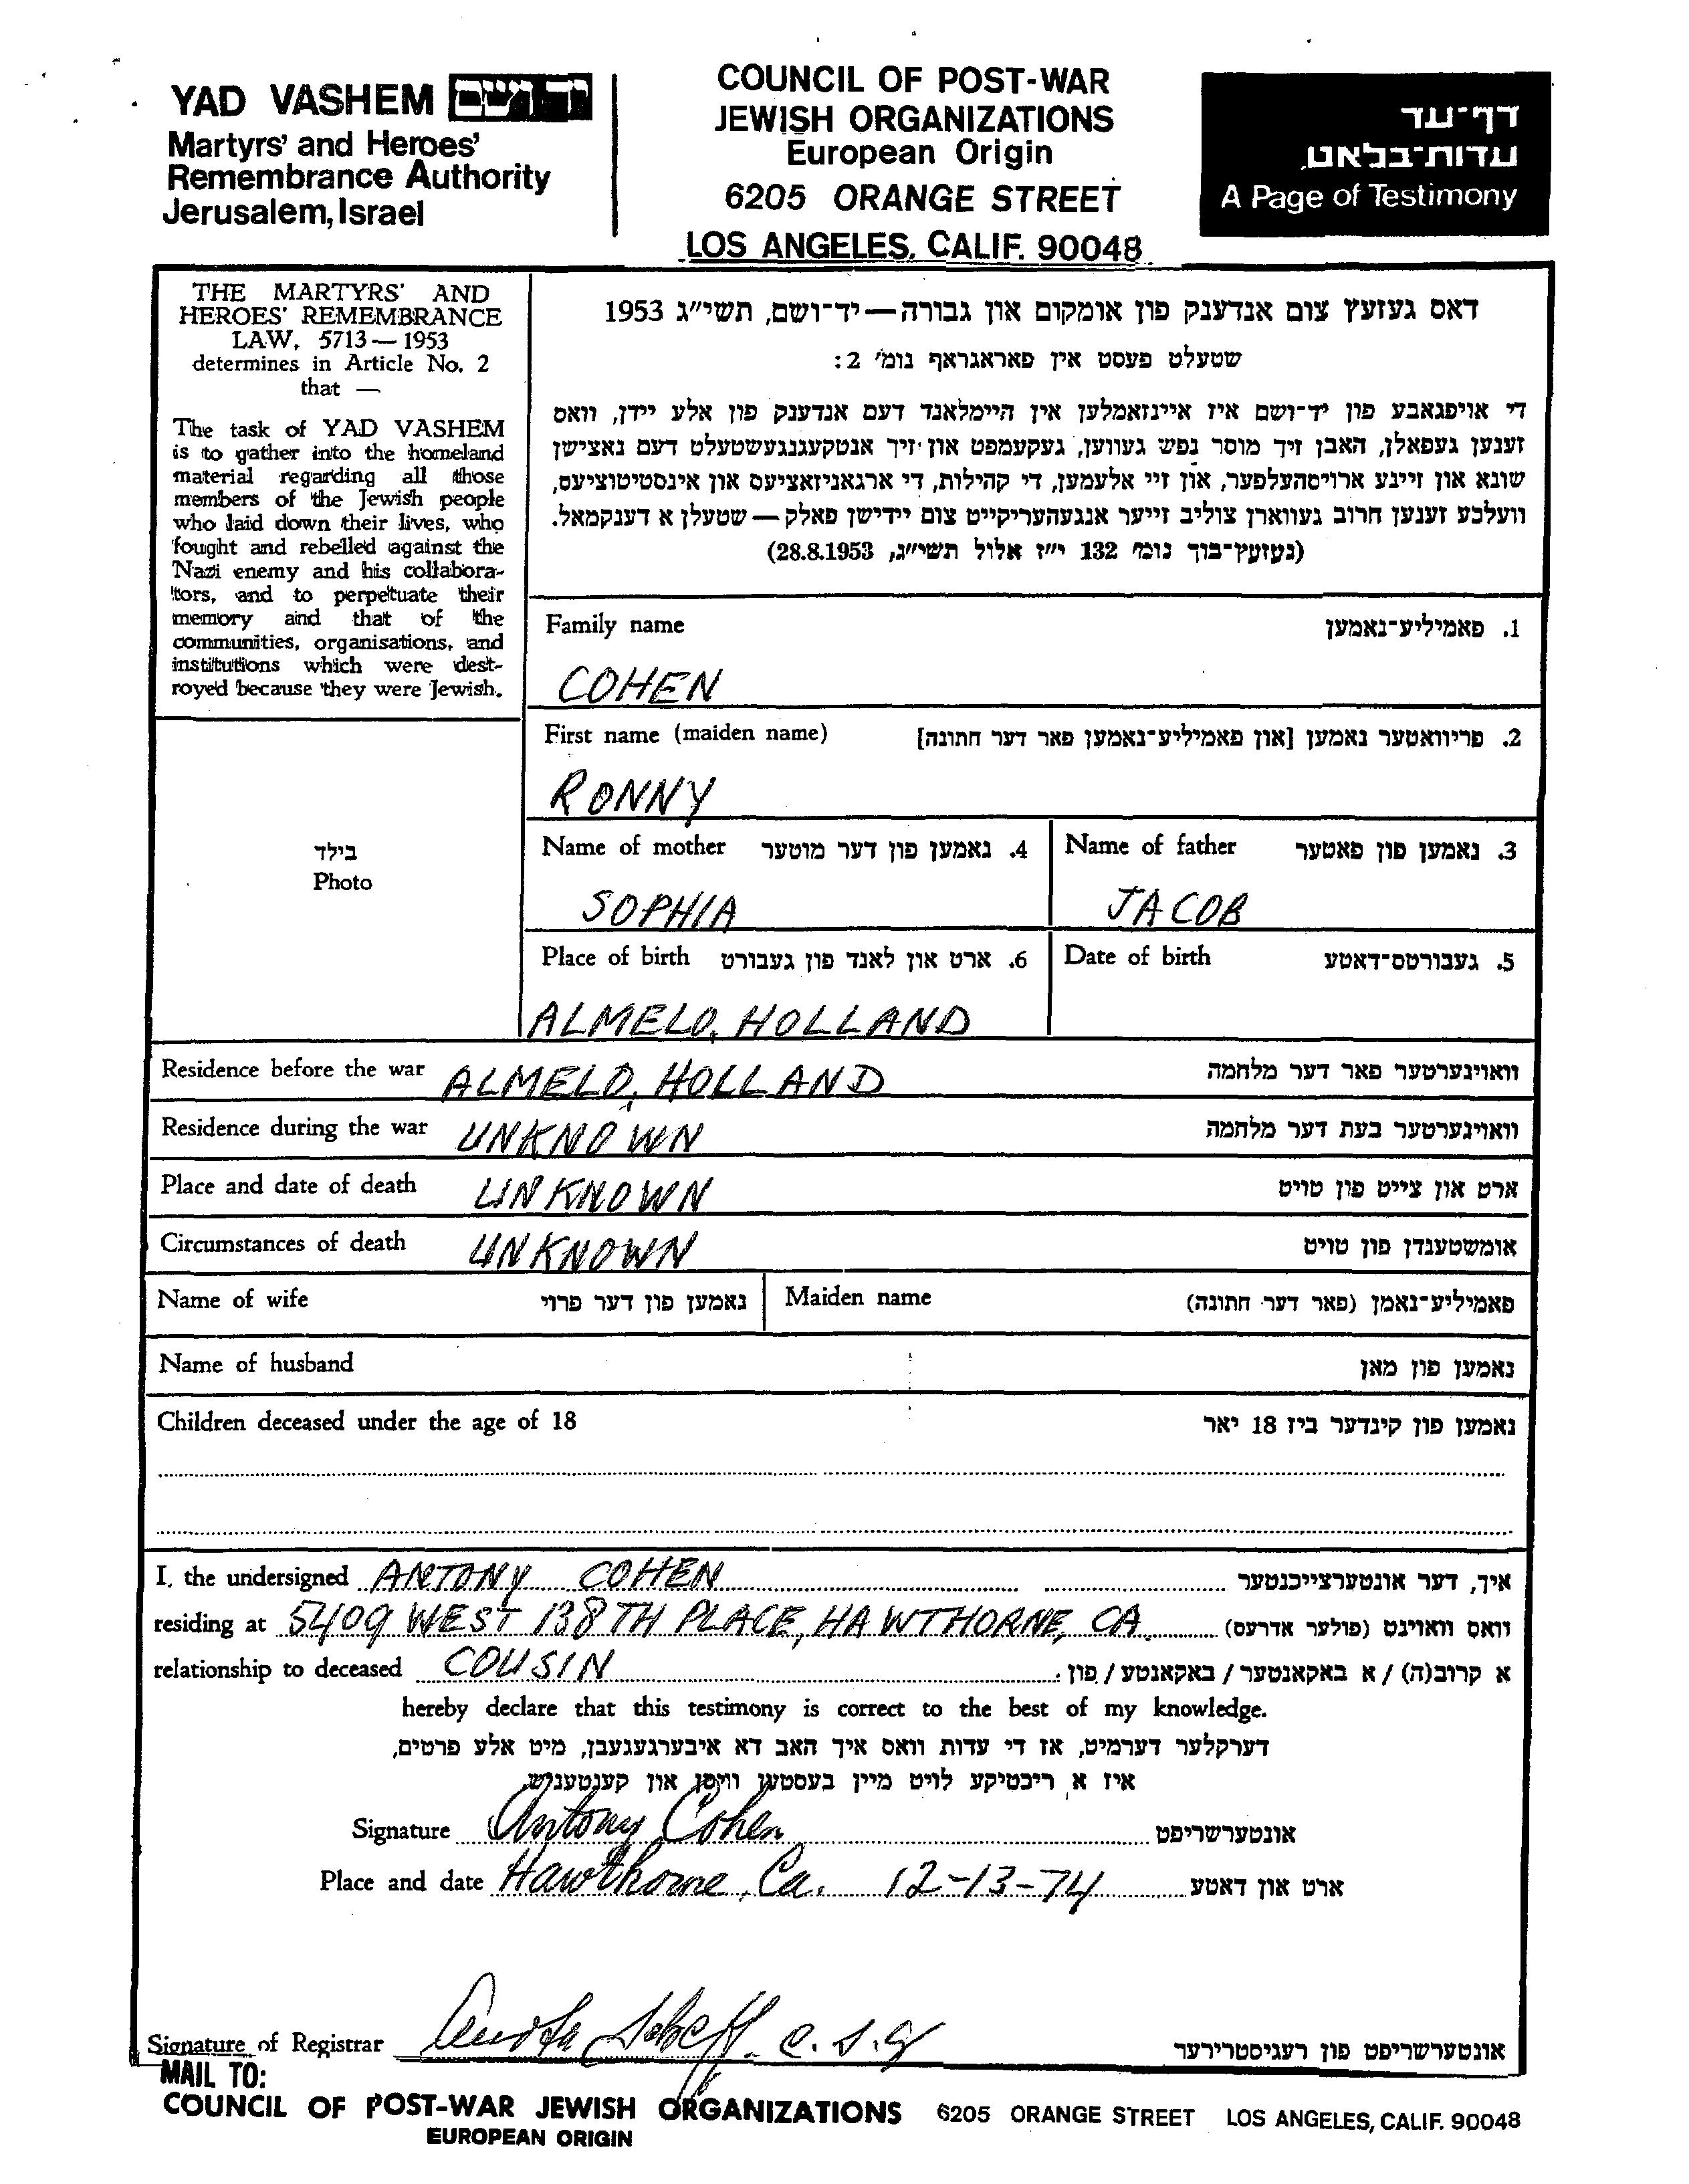 YAD VASHEM יד ושם
Martyrs' and Heroes'
Remembrance Authority
Jerusalem, Israel
COUNCIL OF POST-WAR
JEWISH ORGANIZATIONS
European Origin
6205 ORANGE STREET
LOS ANGELES, CALIF. 90048
דף-עד
עדות-בלאט
A Page of Testimony
THE MARTYRS' AND
HEROES' REMEMBRANCE
LAW, 5713—1953
determines in Article No. 2
that —
The task of YAD VASHEM
is to gather into the homeland
material regarding all those
members of the Jewish people
who laid down their lives, who
fought and rebelled against the
Nazi enemy and his collabora-
tors, and to perpetuate their
memory and that of the
communities, organisations, and
institutions which were dest-
royed because they were Jewish.
דאס געזעץ צום אנדענק פון אומקום און גבורה—יד-ושם, תשי"ג 1953
שטעלט פעסט אין פאראגראף נומ' 2:
די אויפגאבע פון יד-ושם איז איינזאמלען אין היימלאנד דעם אנדענק פון אלע יידן, וואס
זענען געפאלן, האבן זיך מוסר נפש געווען, געקעמפט און זיך אנטקעגנגעשטעלט דעם נאצישן
שונא און זיינע ארויסהעלפער, און זיי אלעמען, די קהילות, די ארגאניזאציעס און אינסטיטוציעס,
וועלכע זענען חרוב געווארן צוליב זייער אנגעהעריקייט צום יידישן פאלק — שטעלן א דענקמאל.
(געזעץ-בוך נומ' 132 י"ז אלול תשי"ג, 28.8.1953)
Family name 1. פאמיליע-נאמען
COHEN
First name (maiden name) 2. פריוואטער נאמען [און פאמיליע-נאמען פאר דער חתונה]
RONNY
בילד
Photo
Name of mother 4. נאמען פון דער מוטער Name of father 3. נאמען פון פאטער
SOPHIA JACOB
Place of birth 6. ארט און לאנד פון געבורט Date of birth 5. געבורטס-דאטע
ALMELO, HOLLAND
Residence before the war ALMELO, HOLLAND וואוינערטער פאר דער מלחמה
Residence during the war UNKNOWN וואוינערטער בעת דער מלחמה
Place and date of death UNKNOWN ארט און צייט פון טויט
Circumstances of death UNKNOWN אומשטענדן פון טויט
Name of wife נאמען פון דער פרוי Maiden name פאמיליע-נאמן (פאר דער חתונה)
Name of husband נאמען פון מאן
Children deceased under the age of 18 נאמען פון קינדער ביז 18 יאר
I, the undersigned ANTONY COHEN איך, דער אונטערצייכנטער
residing at 5409 WEST 138TH PLACE, HAWTHORNE, CA. וואס וואוינט (פולער אדרעס)
relationship to deceased COUSIN א קרוב(ה) / א באקאנטער / באקאנטע / פון:
hereby declare that this testimony is correct to the best of my knowledge.
דערקלער דערמיט, אז די עדות וואס איך האב דא איבערגעגעבן, מיט אלע פרטים,
איז א ריכטיקע לויט מיין בעסטען וויסן און קענטעניש.
Signature Antony Cohen אונטערשריפט
Place and date Hawthorne, Ca. 12-13-74 ארט און דאטע
Signature of Registrar אונטערשריפט פון רעגיסטרירער
MAIL TO:
COUNCIL OF POST-WAR JEWISH ORGANIZATIONS 6205 ORANGE STREET LOS ANGELES, CALIF. 90048
EUROPEAN ORIGIN